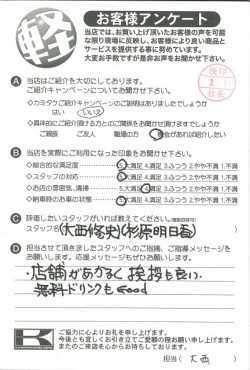 軽
お客様アンケート
当店では、お買い上げ頂いたお客様の声を可能
な限り現場に反映し、お客様により良い商品と
サービスを提供する事に努めています。
大変お手数ですが是非お声をお聞かせ下さい。
A 当店はご紹介を大切にしております。
ご紹介キャンペーンについてお聞かせ下さい。
・カミタケご紹介キャンペーンのご説明はありましたでしょうか
はい いいえ
・具体的にご紹介頂ける方とのご関係をお聞かせ頂けますでしょうか
ご親族 ご友人 職場の方 機会があれば紹介したい
B 当店を実際にご利用になった印象をお聞かせ下さい。
◇総合的な満足度 5.大満足 4.満足 3.ふつう 2.やや不満 1.不満
◇スタッフの対応 5.大満足 4.満足 3.ふつう 2.やや不満 1.不満
◇お店の雰囲気、清掃 5.大満足 4.満足 3.ふつう 2.やや不満 1.不満
◇納車時のお車の状態 5.大満足 4.満足 3.ふつう 2.やや不満 1.不満
C 評価したいスタッフがいれば教えてください。
スタッフ名(大西修史)(杉原明日香)
D 担当させて頂きましたスタッフへのご指摘、ご指導メッセージを
お願いします。応援メッセージもぜひお願いします。
・店舗があかるく挨拶も良い。
無料ドリンクもGood
K
ご協力に心よりお礼を申し上げます。
今後とも宜しくお引き立てご愛顧の程お願い申し上げます。
またのご来店を心からお待ちしております。
担当( 大西 )